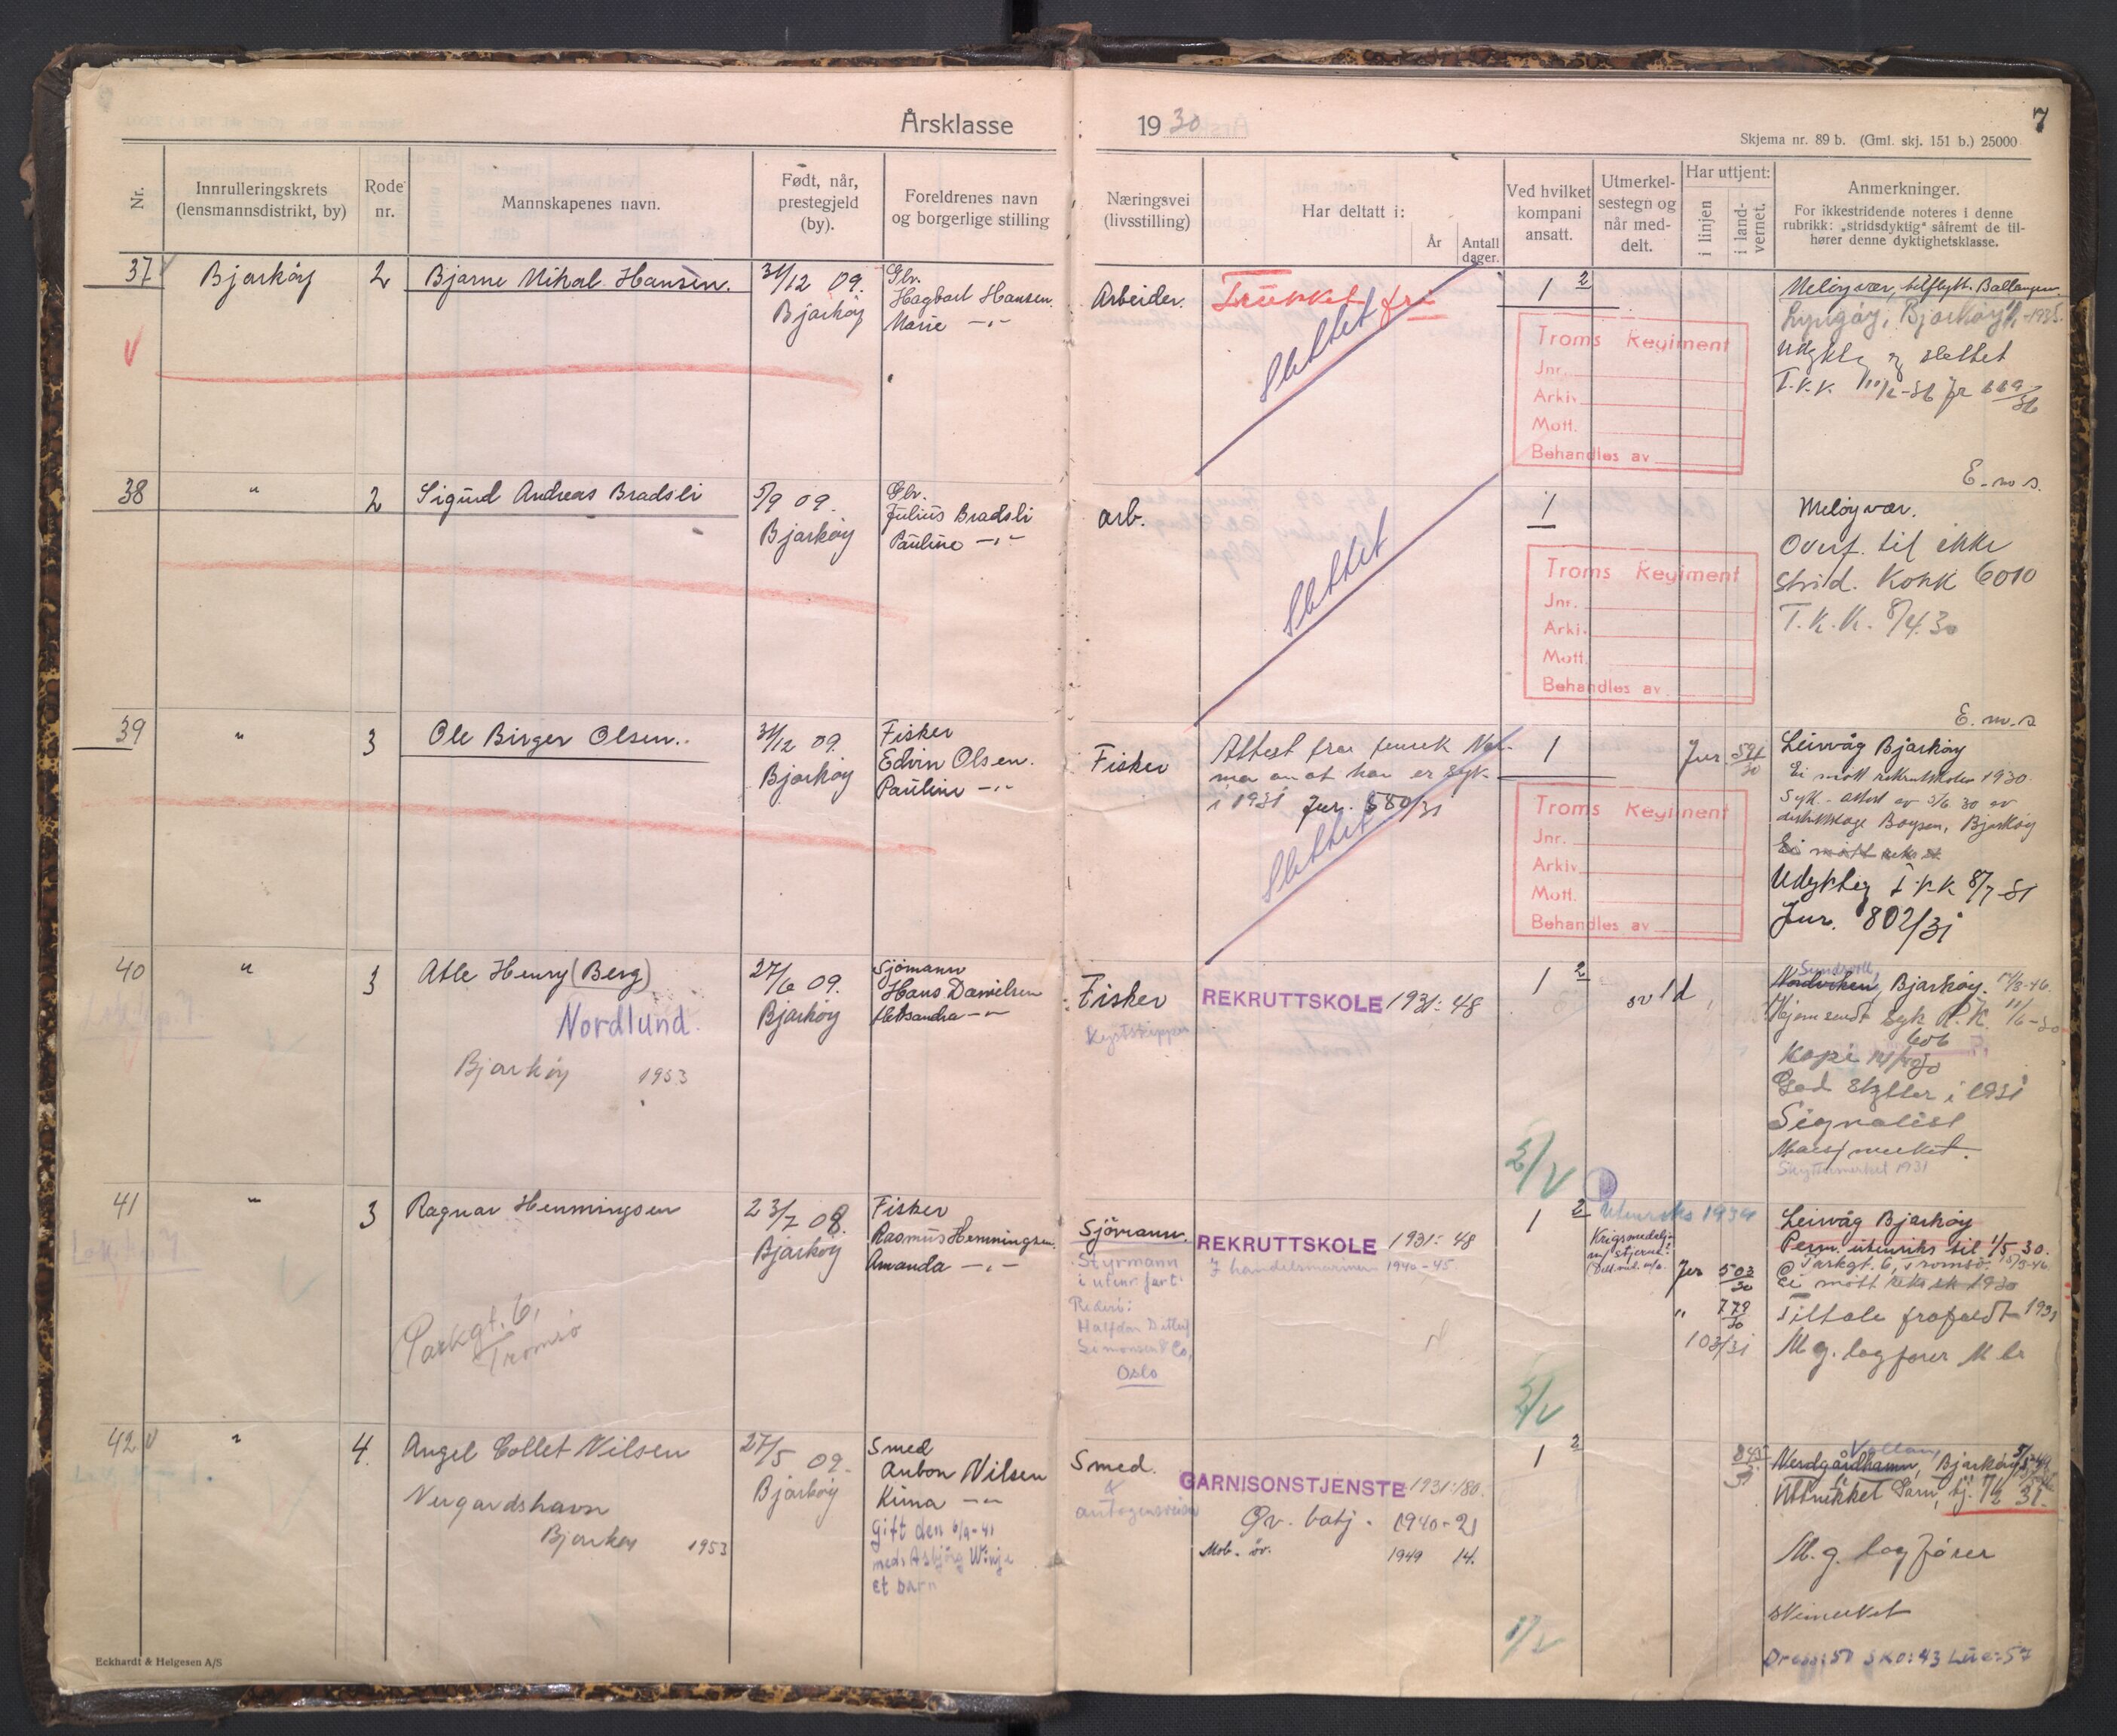 Årsklasse 1930
7
Skjema nr. 89 b. (Gml. skj. 151 b.) 25000
Nr.
Innrulleringskrets
(lensmannsdistrikt, by)
Rode
nr.
Mannskapenes navn.
Født, når,
prestegjeld
(by).
Foreldrenes navn
og borgerlige stilling
Næringsvei
(livsstilling)
Har deltatt i:
År
Antall
dager.
Ved hvilket
kompani
ansatt.
Utmerkel-
sestegn og
når med-
delt.
Har uttjent:
i linjen
i land-
vernet.
Anmerkninger.
For ikkestridende noteres i denne
rubrikk: „stridsdyktig" såfremt de til-
hører denne dyktighetsklasse.
37
Bjarköy
2
Bjarne Nikol. Hansen.
31/12 09.
Bjarköy
Gbr.
Hagbart Hansen.
Marie -"-
Arbeider.
Trukket fri
Slettet
1 2
Troms Regiment
Jnr.
Arkiv
Mott.
Behandles av
Meløyvær, tilflytt. Ballangen
Lyngöy, Bjarköy -1935.
Udyktig og slettet
T.K.K.
E.m.s.
38
"
2
Sigurd Andreas Bradsli
5/9 09.
Bjarköy
Gbr.
Julius Bradsli
Pauline -"-
arb.
Slettet
1
Troms Regiment
Jnr.
Arkiv
Mott.
Behandles av
Meløyvær.
Overf. til ikke
strid. KoKK 6010
T.K.K. 8/4.30
E.m.s
39
"
3
Ole Birger Olsen.
31/12 09.
Bjarköy
Fisker
Edvin Olsen.
Pauline -"-
Fisker
Attest fra
mer om at han er syk
i 1931 Jnr. 580/31
Slettet
1
Troms Regiment
Jnr.
Arkiv
Mott.
Behandles av
Jnr. 591/30
Leirvåg Bjarköy
Ei mött rekruttskolen 1930.
Syk. - attest av 3/6 30 av
distriktslæge Boysen, Bjarköy
Ei mött
Udyktig T.K.K 8/7-31
Jnr. 802/31
40
"
3
Atle Henry (Berg)
Nordlund.
Bjarköy 1953
27/6 09.
Bjarköy
Sjömann
Hans Danielsen
Aleksandra -"-
Fisker
Kystskipper
REKRUTTSKOLE 1931: 48
1 2
2/V
Sundsvoll
Nordviken, Bjarköy. 12/3-46.
Hjemsendt syk R.K. 11/6-30
Kopi
God skytter i 1931
Signalist
merket.
Skyttermerket 1931
41
"
3
Ragnar Henningsen
Parkgt. 6,
Tromsö
23/7 08.
Bjarköy
Fisker
Rasmus Henningsen.
Amanda -"-
Sjömann.
Styrmann
i utenr. fart.
Rederi:
Halfdan Ditlev
Simonsen & Co,
Oslo
REKRUTTSKOLE 1931: 48
I handelsmarinen 1940-45.
1 2
2/V
Utenriks 1939
Krigsmedalje
m/ stjerne?
Jnr 503/30
" 779/30
103/31
Leirvåg Bjarköy
Perm. utenriks til 1/5 30.
Parkgt. 6, Tromsö.
Ei mött rekr.sk 1930
Tiltale frafaldt 1931
M.g. lagfører
42
"
4.
Angel Collet Nilsen
Nergårdshavn
Bjarköy 1953
27/5 09.
Bjarköy
Smed
Anton Nilsen
Kima -"-
Gift den 6/9-41
med Asbjörg Winje
et barn
Smed.
&
autogensveiser
GARNISONSTJENSTE 1931: 180.
Gv. batj. - 1940 - 21
Mob. øv. 1949 14.
1 2
1/V
Vollan,
Nergårdhamn, Bjarköy
M.g. lagfører
skimerket
Dress: 50 Sko: 43 Lue: 57
Eckhardt & Helgesen A/S